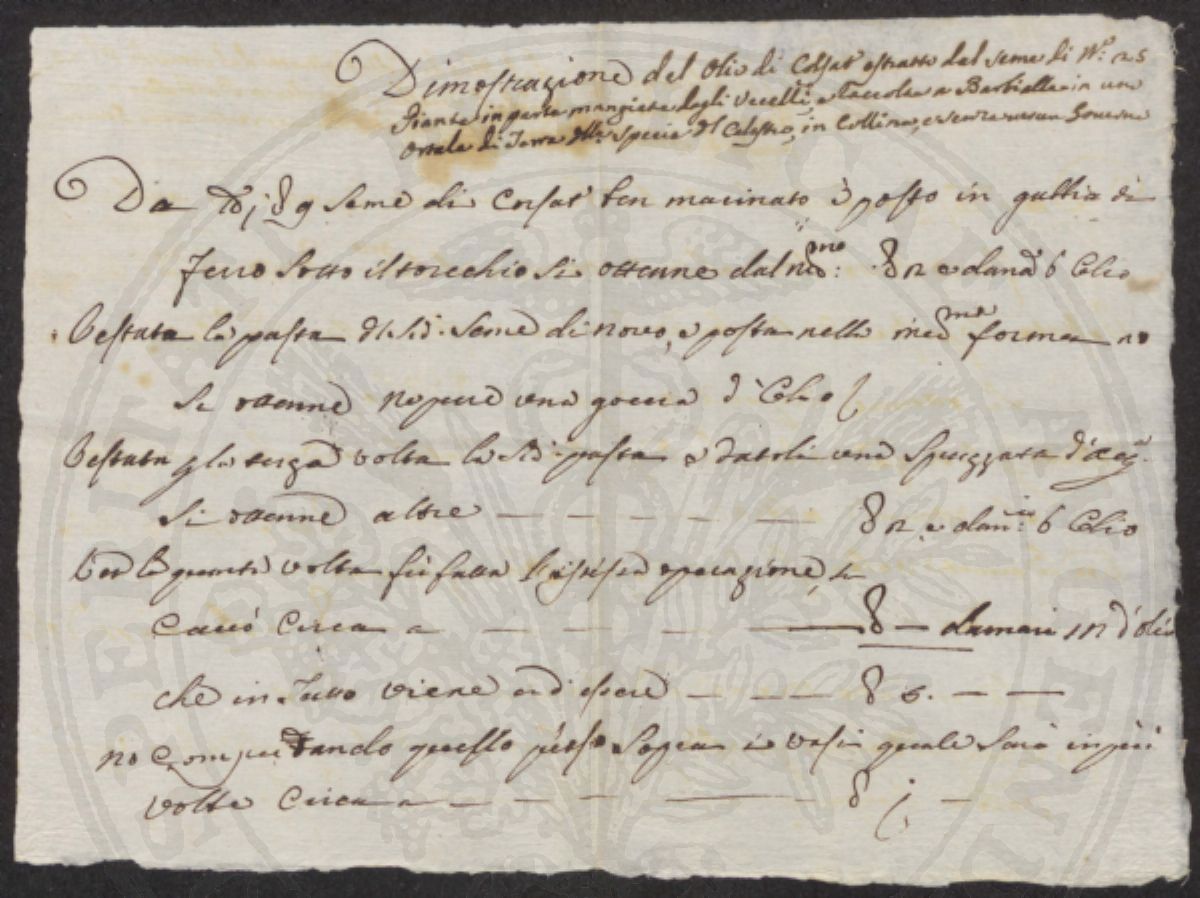 Dimostrazione del Olio di Colsat estratto del seme di N.º 25
Piante in parte mangiate dagli Uccelli, e Taccolea a Barbialla in un
Ortale di Terra della specie del Celestro, in Collina, e senza verun Governo
Da 9 seme di Corsat ben macinato è posto in gabbia di
ferro sotto il torcchio si ottenne dal med.mo: 2 e danà 6 Olio
Pestata la pasta di Sd. Seme di novo, e posta nella med.ma forma no
si ottenne nepure una goccia d'Olio
Pestata p la terza volta la Sd. pasta e datoli una spruzzata d'acq.
si ottenne altre — — — — — 2 e dan.i 6 Olio
Per la quarta volta fù fatta l'istessa operazione, e
cavò circa a — — — — — — danari 12 d'olio
che in Tutto viene ad essere — — — 5. — —
no computando quello perso sopra i vasi quale sarà in più
volte circa a — — — — — j —
SPERITATI